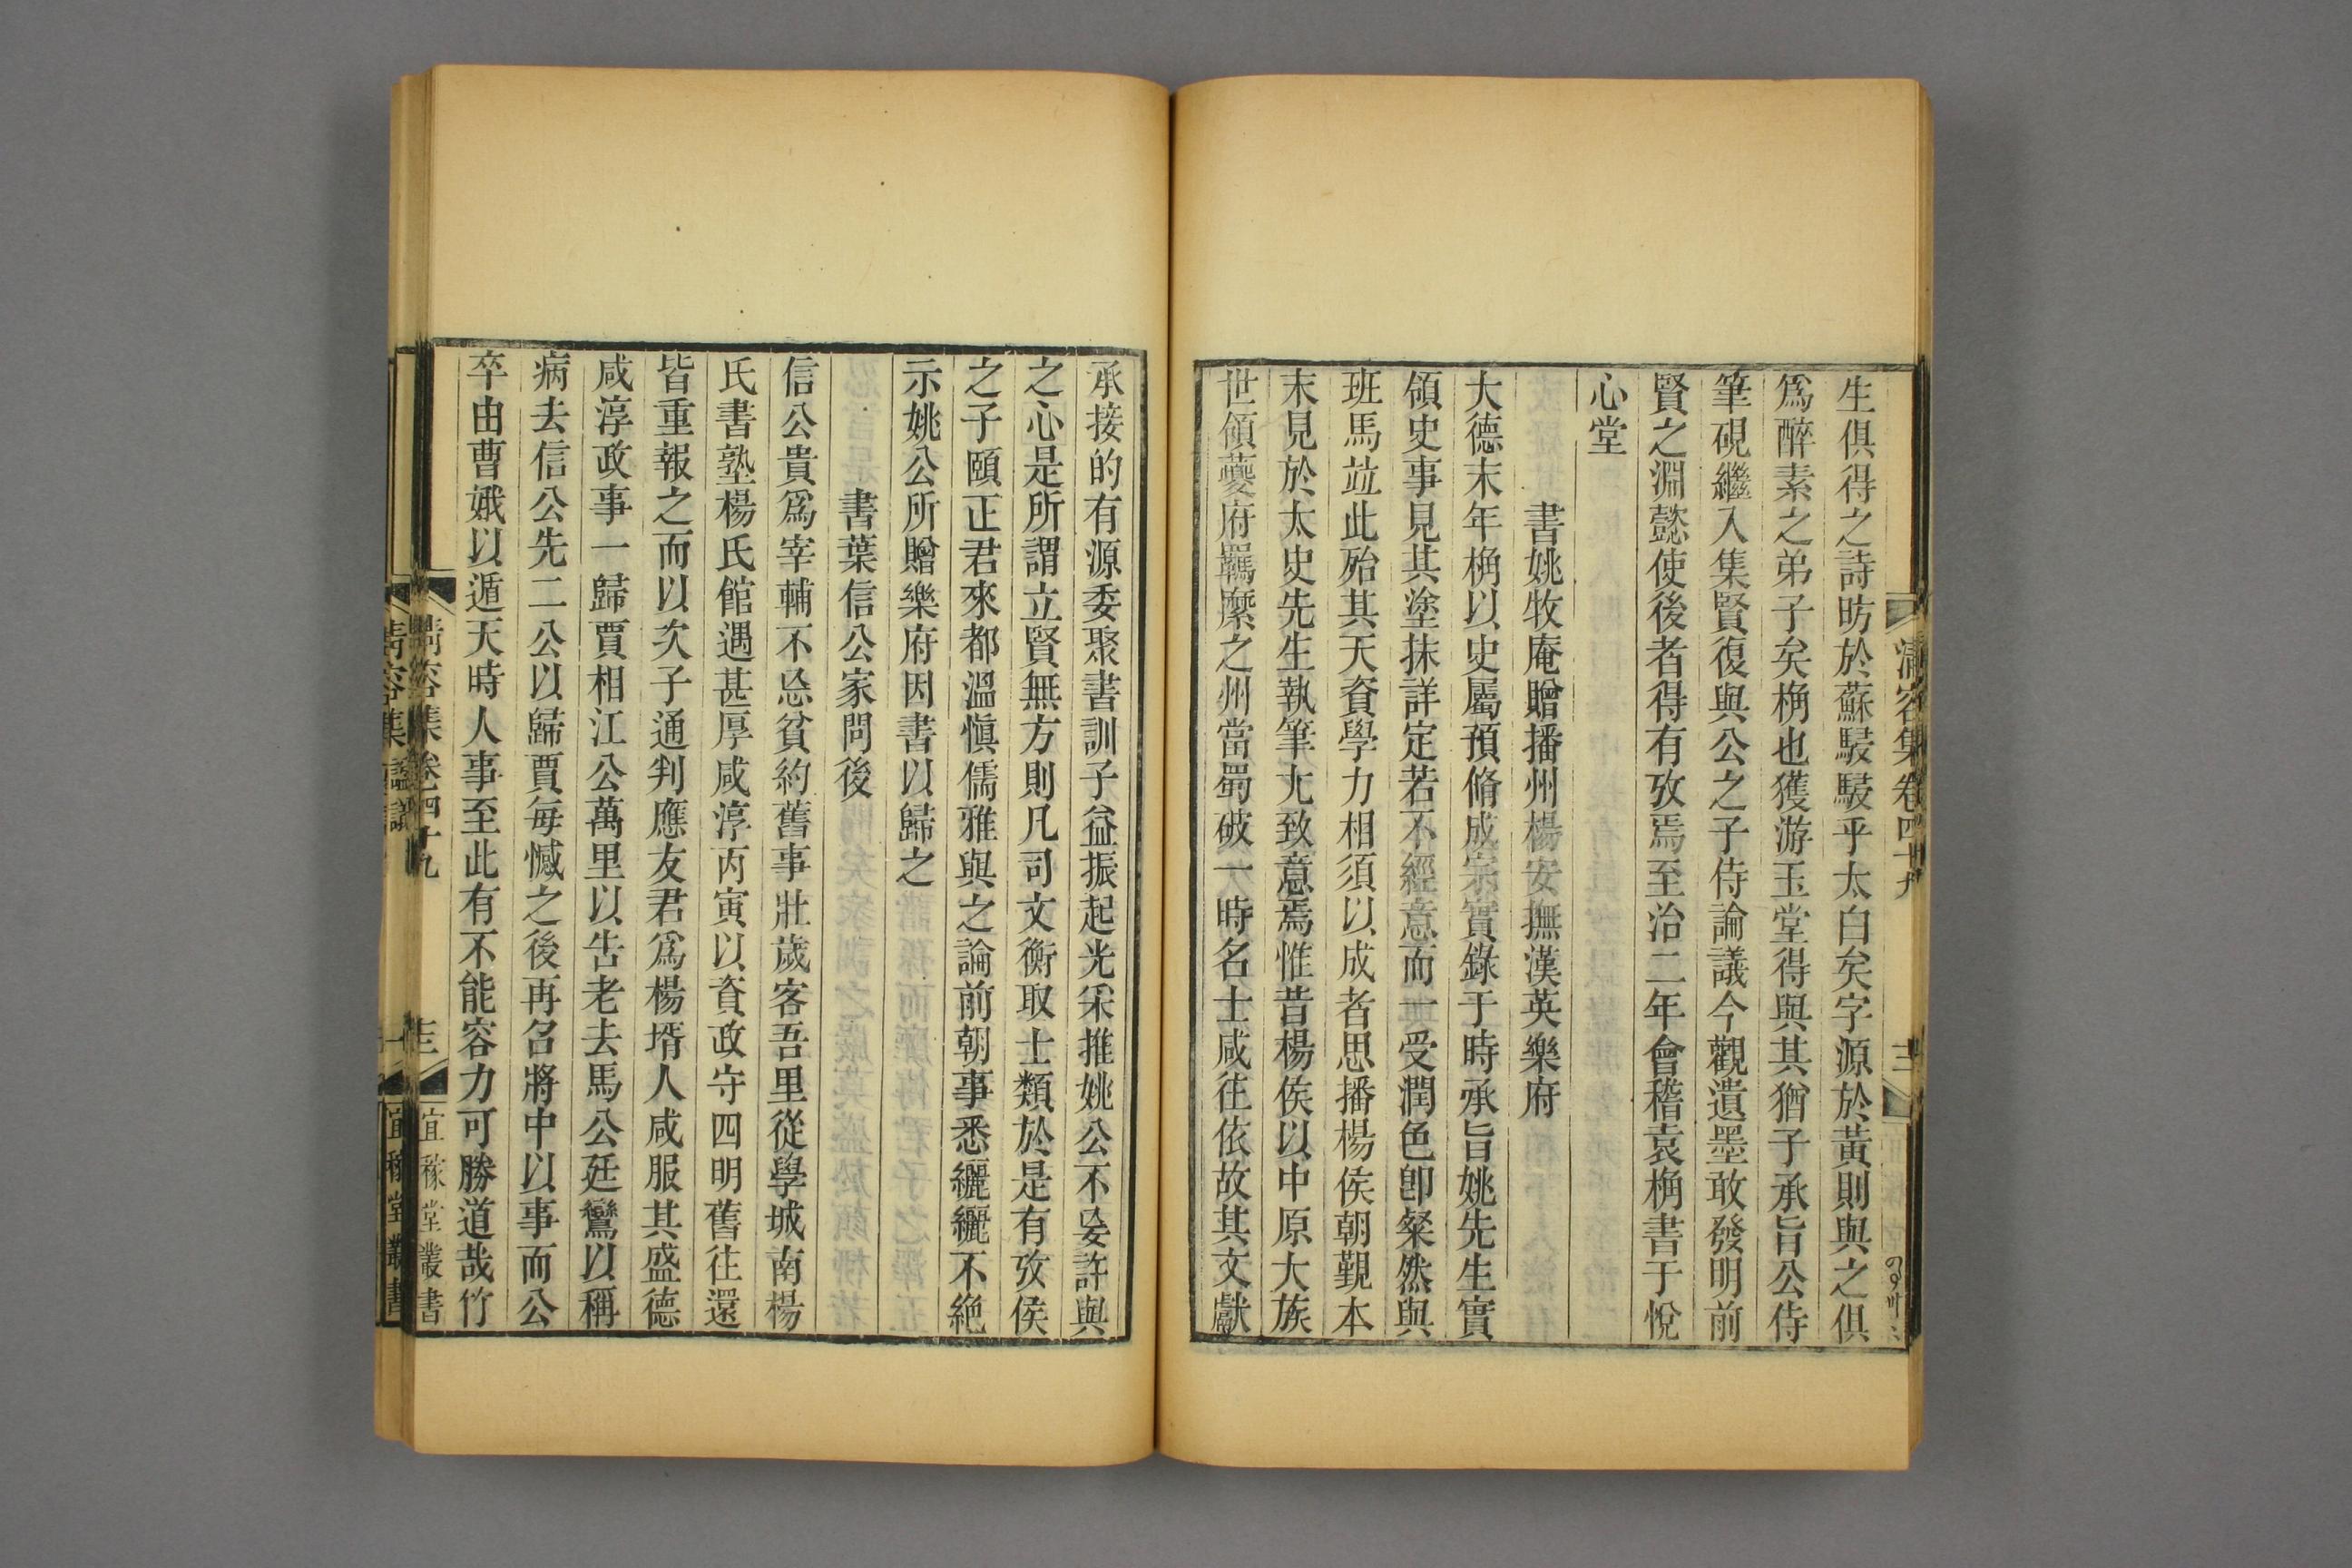 清容集卷四十九
三
生俱得之詩昉於蘇駸駸乎太白矣字源於黃則與之俱
爲醉素之弟子矣桷也獲游玉堂得與其猶子承旨公侍
筆硯繼入集賢復與公之子侍論議今觀遺墨敢發明前
賢之淵懿使後者得有攷焉至治二年會稽袁桷書于悅
心堂
書姚牧庵贈播州楊安撫漢英樂府
大德末年桷以史屬預脩成宗實錄于時承旨姚先生實
領史事見其塗抹詳定若不經意而一受潤色卽粲然與
班馬竝此殆其天資學力相須以成者思播楊侯朝覲本
末見於太史先生執筆尢致意焉惟昔楊侯以中原大族
世領夔府羈縻之州當蜀破一時名士咸往依故其文獻
承接的有源委聚書訓子益振起光寀推姚公不妄許與
之心是所謂立賢無方則凡司文衡取士類於是有攷侯
之子頤正君來都溫愼儒雅與之論前朝事悉纚纚不絶
示姚公所贈樂府因書以歸之
書葉信公家問後
信公貴爲宰輔不忘貧約舊事壯歲客吾里從學城南楊
氏書塾楊氏館遇甚厚咸淳丙寅以資政守四明舊往還
皆重報之而以次子通判應友君爲楊壻人咸服其盛德
咸淳政事一歸賈相江公萬里以告老去馬公廷鸞以稱
病去信公先二公以歸賈每憾之後再召將中以事而公
卒由曹娥以遁天時人事至此有不能容力可勝道哉竹
清容集卷四十九
三
宜稼堂叢書
清容集
宜稼堂叢書